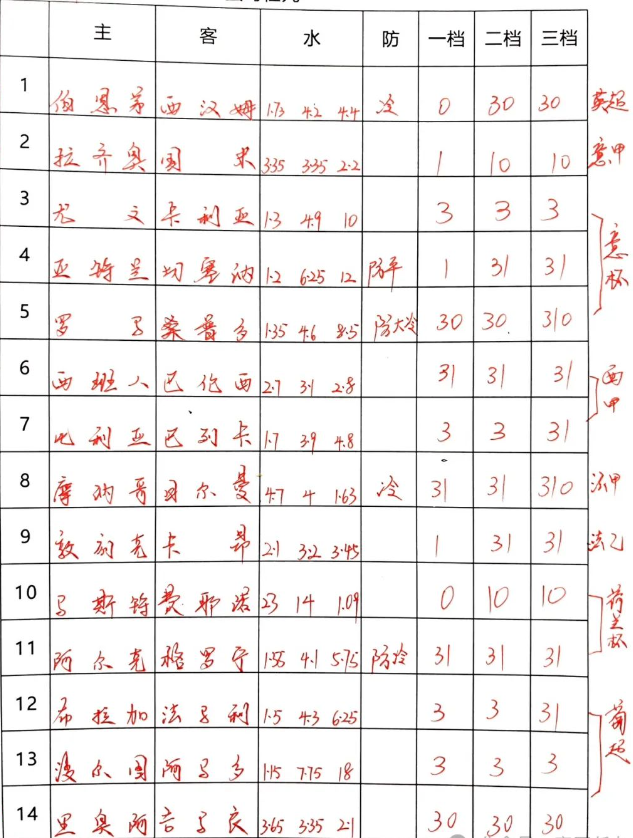 主 客 水 防 一档 二档 三档
1 伯恩茅 西汉姆 1·73 4·2 4·4 冷 0 30 30 英超
2 拉齐奥 国米 3·35 3·35 2·2 1 10 10 意甲
3 尤文 卡利亚 1·3 4·9 10 3 3 3
4 亚特兰 切塞纳 1·2 6·25 12 防平 1 31 31 意杯
5 罗马 桑普多 1·35 4·6 8·5 防大冷 30 30 310
6 西班人 巴伦西 2·7 3·1 2·8 31 31 31 西甲
7 比利亚 巴列卡 1·7 3·9 4·8 3 3 31
8 摩纳哥 4·7 4 1·63 冷 31 31 310 法甲
9 敦刻克 卡昂 2·1 3·2 3·45 1 31 31 法乙
10 马斯特 费耶诺 23 14 1·09 0 10 10 荷兰杯
11 阿尔克 格罗宁 1·55 4·1 5·75 防冷 31 31 31
12 布拉加 法马利 1·5 4·3 6·25 3 3 31 葡超
13 波尔图 阿马多 1·15 7·75 18 3 3 3
14 里奥阿 吉马良 3·65 3·35 2·1 30 30 30